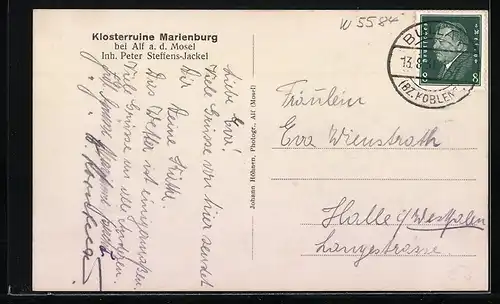 Klosterruine Marienburg
bei Alf a. d. Mosel
Inh. Peter Steffens-Jackel
W 5584
Liebe Eva!
Viele Grüsse von hier sendet
Dir
Deine Käthe.
Das Wetter ist einigermaßen.
Viele Grüsse an alle Anderen.
Johann Höhnen, Photogr., Alf (Mosel)
Deutsches Reich
8
13.8
(BZ. KOBLENZ)
Fräulein
Eva Wienstrath
Halle i/Westfalen
Langestrasse.